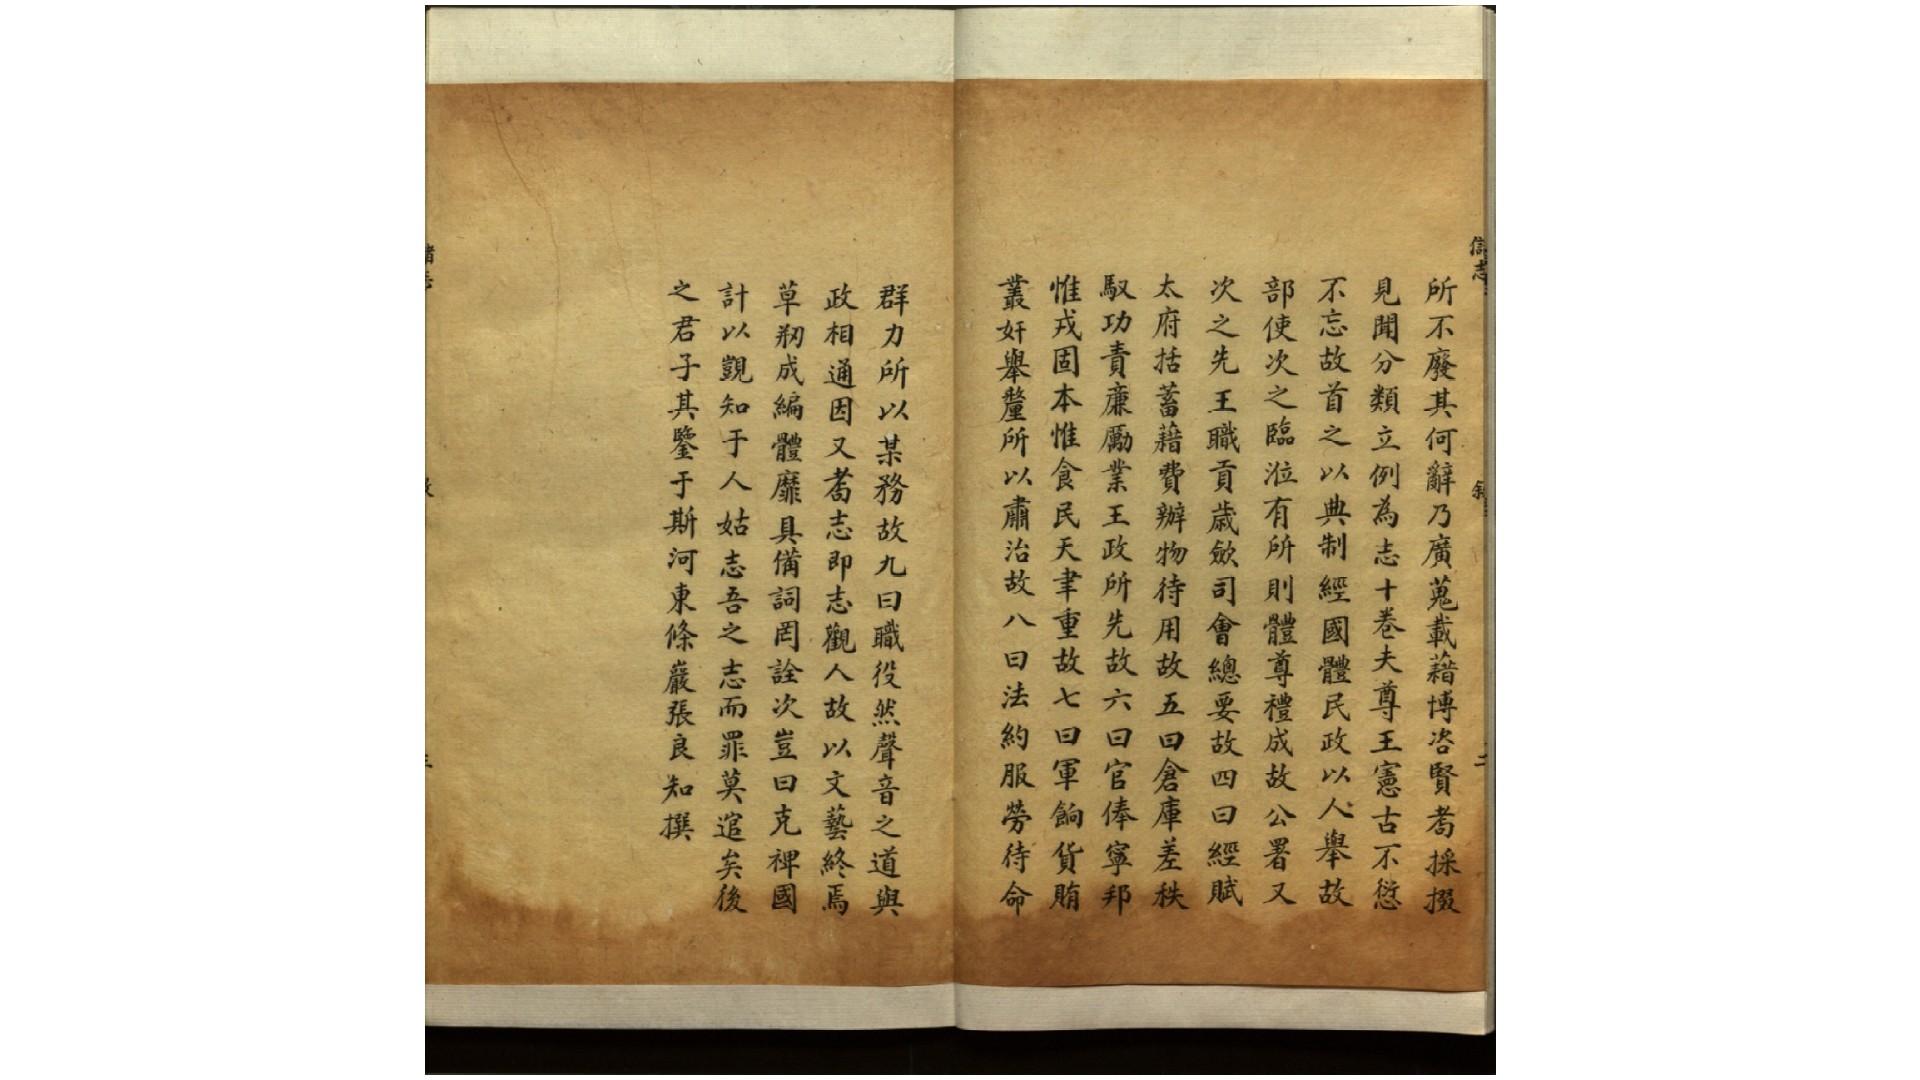 所不廢其何辭乃廣蒐載藉博咨賢耆採掇
見聞分類立例為志十卷夫尊王憲古不愆
不忘故首之以典制經國體民政以人舉故
部使次之臨涖有所則體尊禮成故公署又
次之先王職貢歲斂司會總要故四曰經賦
太府括蓄藉費辦物待用故五曰倉庫差秩
馭功責廉勵業王政所先故六曰官俸寧邦
惟戎固本惟食民天聿重故七曰軍餉貨賄
叢奸舉釐所以肅治故八曰法約服勞待命
群力所以某務故九曰職役然聲音之道與
政相通因文耆志即志觀人故以文藝終焉
草剏成編體靡具備詞罔詮次豈曰克裨國
計以覬知于人姑志吾之志而罪莫逭矣後
之君子其鑒于斯河東條巖張良知撰